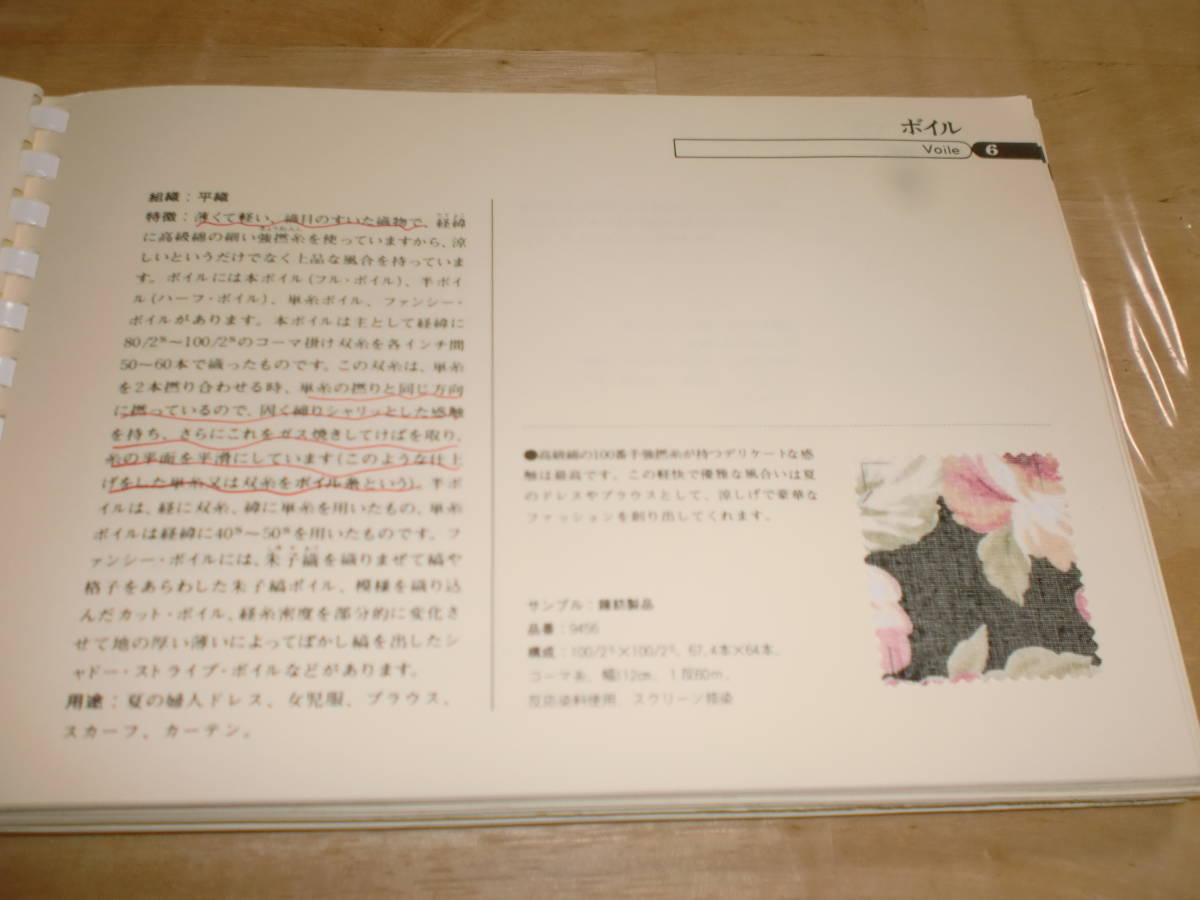 ボイル
Voile 6
組織：平織
特徴：薄くて軽い、織目のすいた織物で、経緯
に高級綿の細い強撚糸を使っていますから、涼
しいというだけでなく上品な風合を持っていま
す。ボイルには本ボイル(フル・ボイル)、半ボイ
ル(ハーフ・ボイル)、単糸ボイル、ファンシー・
ボイルがあります。本ボイルは主として経緯に
80/2ˢ～100/2ˢのコーマ掛け双糸を各インチ間
50～60本で織ったものです。この双糸は、単糸
を2本撚り合わせる時、単糸の撚りと同じ方向
に撚っているので、固く締りシャリッとした感触
を持ち、さらにこれをガス焼きしてけばを取り、
糸の平面を平滑にしています(このような仕上
げをした単糸又は双糸をボイル糸という)。半ボ
イルは、経に双糸、緯に単糸を用いたもの、単糸
ボイルは経緯に40ˢ～50ˢを用いたものです。フ
ァンシー・ボイルには、朱子織を織りまぜて縞や
格子をあらわした朱子縞ボイル、模様を織り込
んだカット・ボイル、経糸密度を部分的に変化さ
せて地の厚い薄いによってぼかし縞を出したシ
ャドー・ストライプ・ボイルなどがあります。
用途：夏の婦人ドレス、女児服、ブラウス、
スカーフ、カーテン。
●高級綿の100番手強撚糸が持つデリケートな感
触は最高です。この軽快で優雅な風合いは夏
のドレスやブラウスとして、涼しげで豪華な
ファッションを創り出してくれます。
サンプル：鐘紡製品
品番：9456
構成：100/2ˢ×100/2ˢ、67.4本×64本、
コーマ糸、幅112cm、1反60m、
反応染料使用、スクリーン捺染